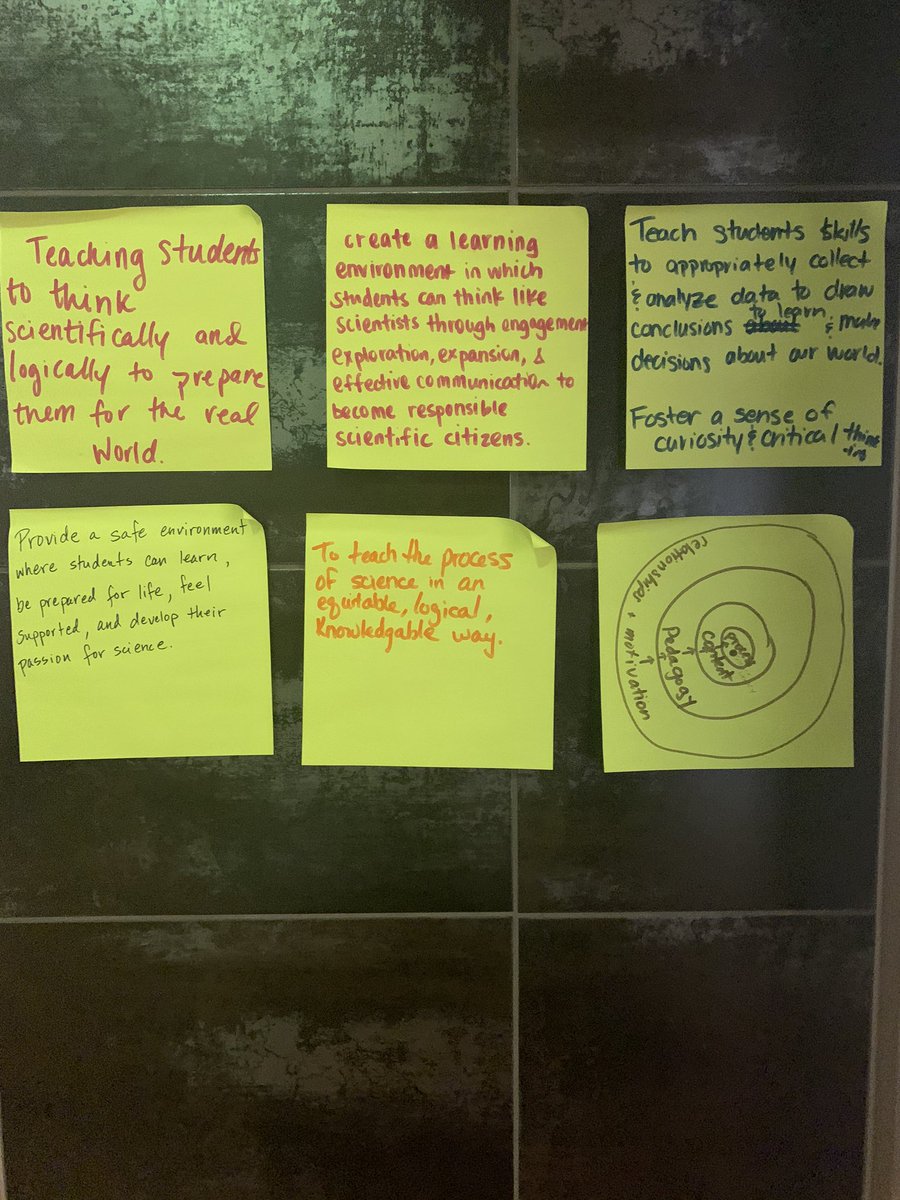 Teaching students
to think
scientifically and
logically to prepare
them for the real
world.
create a learning
environment in which
students can think like
scientists through engagement
exploration, expansion, &
effective communication to
become responsible
scientific citizens.
Teach students skills
to appropriately collect
& analyze data to draw
conclusions to learn & make
decisions about our world.
Foster a sense of
curiosity & critical think
-ing
Provide a safe environment
where students can learn,
be prepared for life, feel
supported, and develop their
passion for science.
To teach the process
of science in an
equitable, logical,
knowledgable way.
relationships + motivation
Pedagogy
content